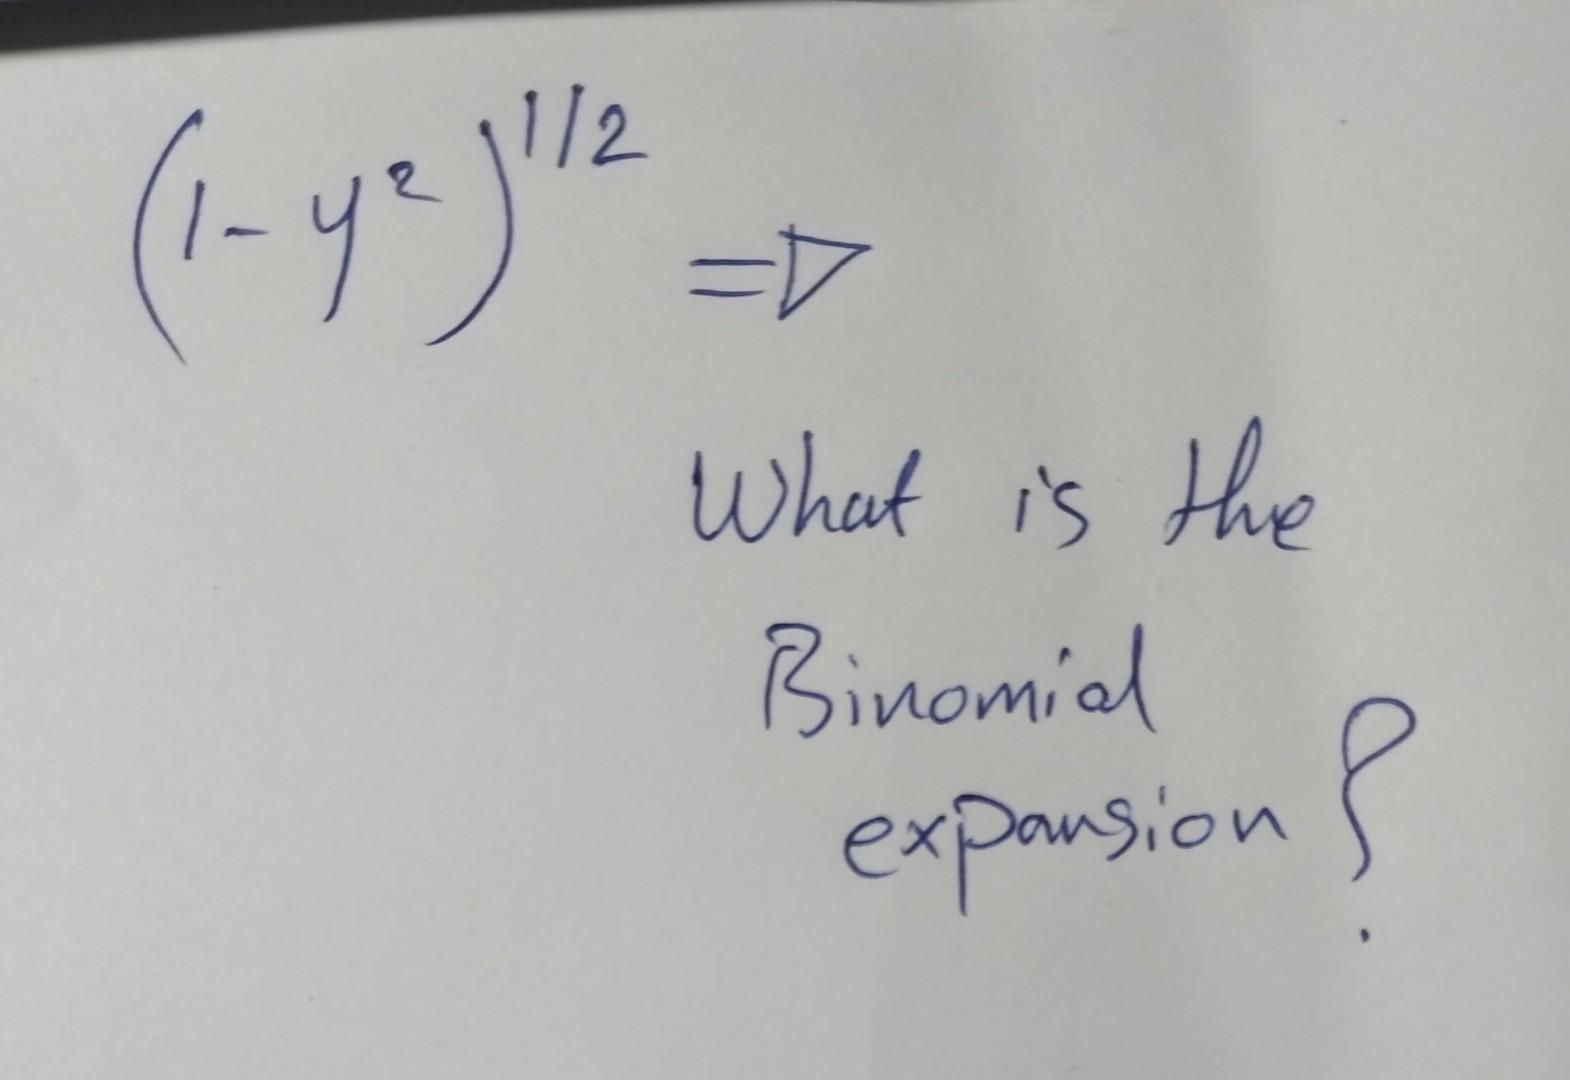 (1-y²)^1/2 ⇒
What is the
Binomial
expansion?